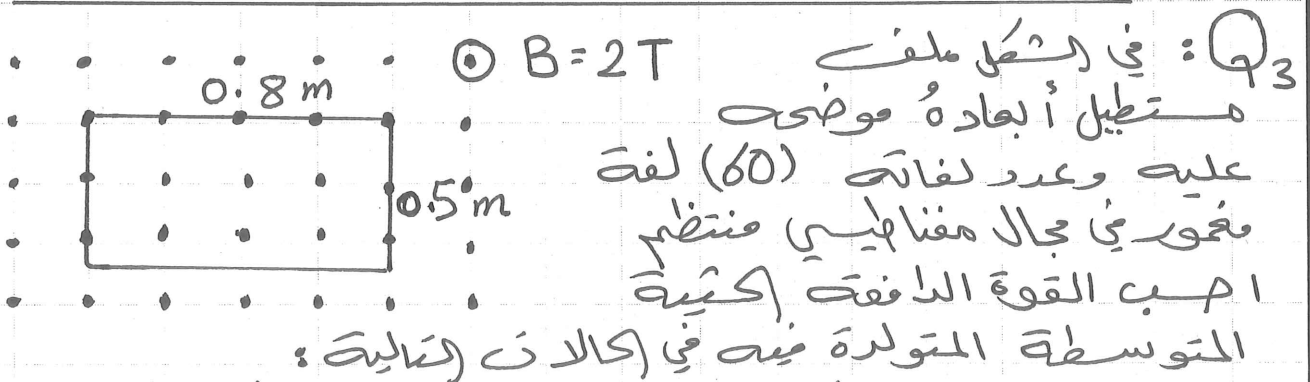 Q3 : في الشكل ملف
مستطيل أبعادهُ موضحه
عليه وعدد لفاته (60) لفة
مغمور في مجال مغناطيسي منتظم
احسب القوة الدافعة الحثية
المتوسطة المتولدة فيه في الحالات التالية :
B = 2 T
0.8 m
0.5 m